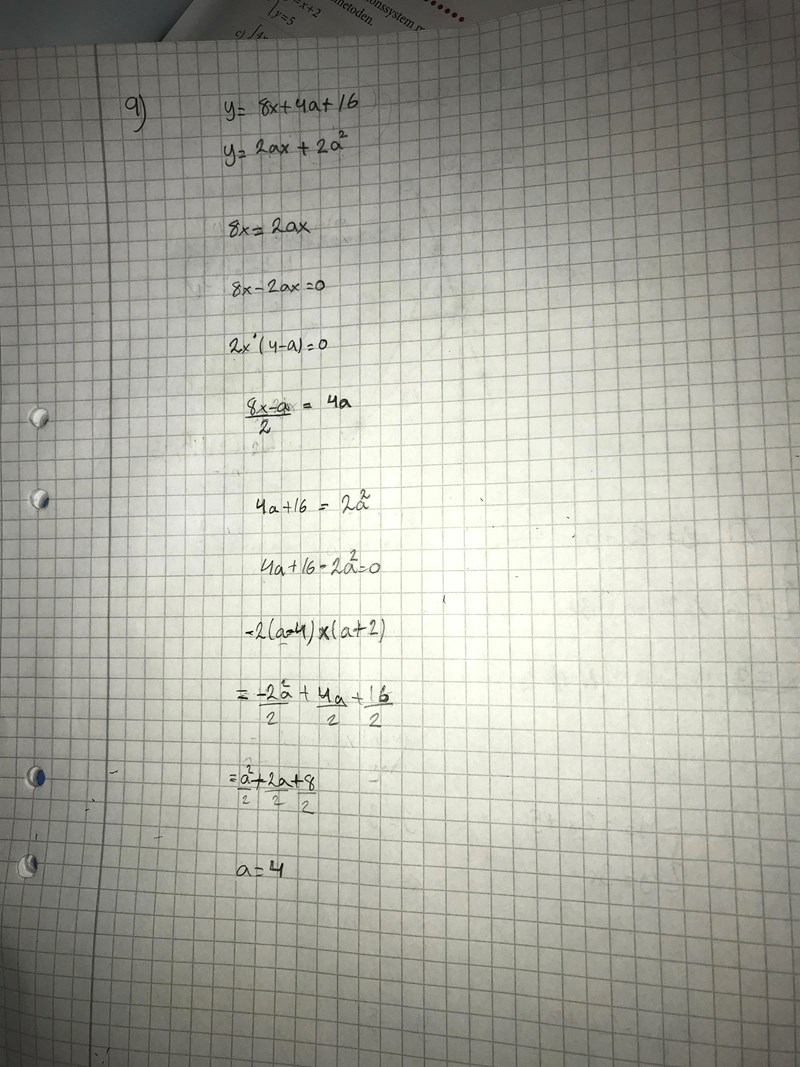 =x+2
y=5
c)
onssystem
metoden.
9)
y= 8x+4a+16
y= 2ax + 2a²
8x= 2ax
8x-2ax=0
2x·(4-a)=0
8x-a/2 = 4a
4a+16 = 2a²
4a+16-2a²=0
-2(a-4)x(a+2)
= -2a²/2 + 4a/2 + 16/2
= a²/2 + 2a/2 + 8/2
a=4